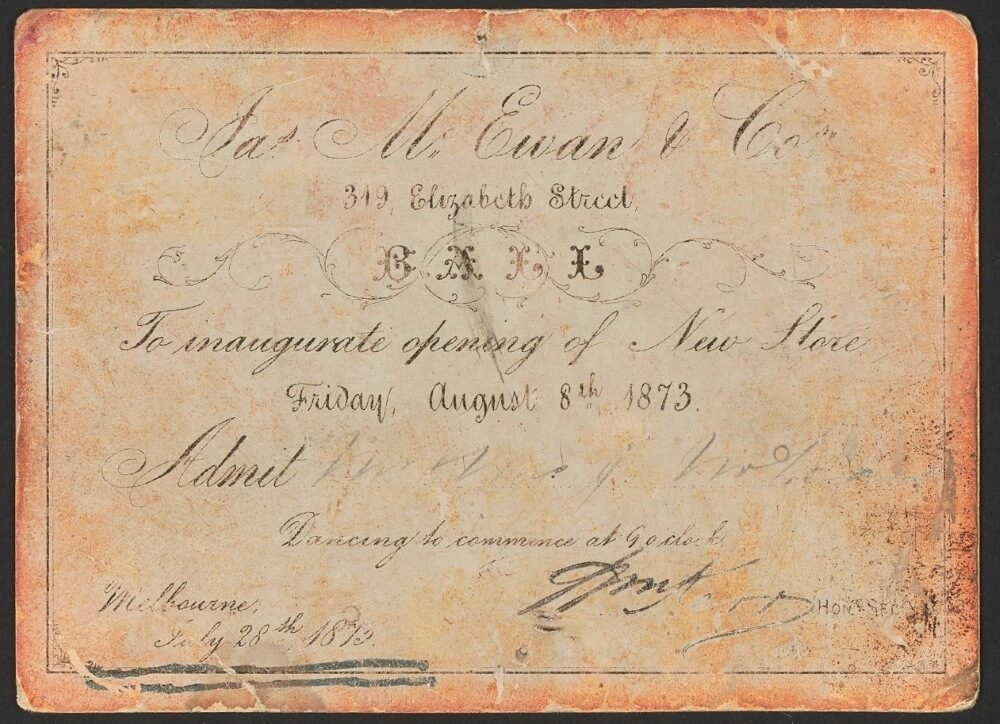 Jas. Mc. Ewan & Co.
319, Elizabeth Street,
BALL
To inaugurate opening of New Store
Friday, August 8th 1873.
Admit
Dancing to commence at 9 o'clock
Melbourne,
July 28th, 1873.
HON. SEC.